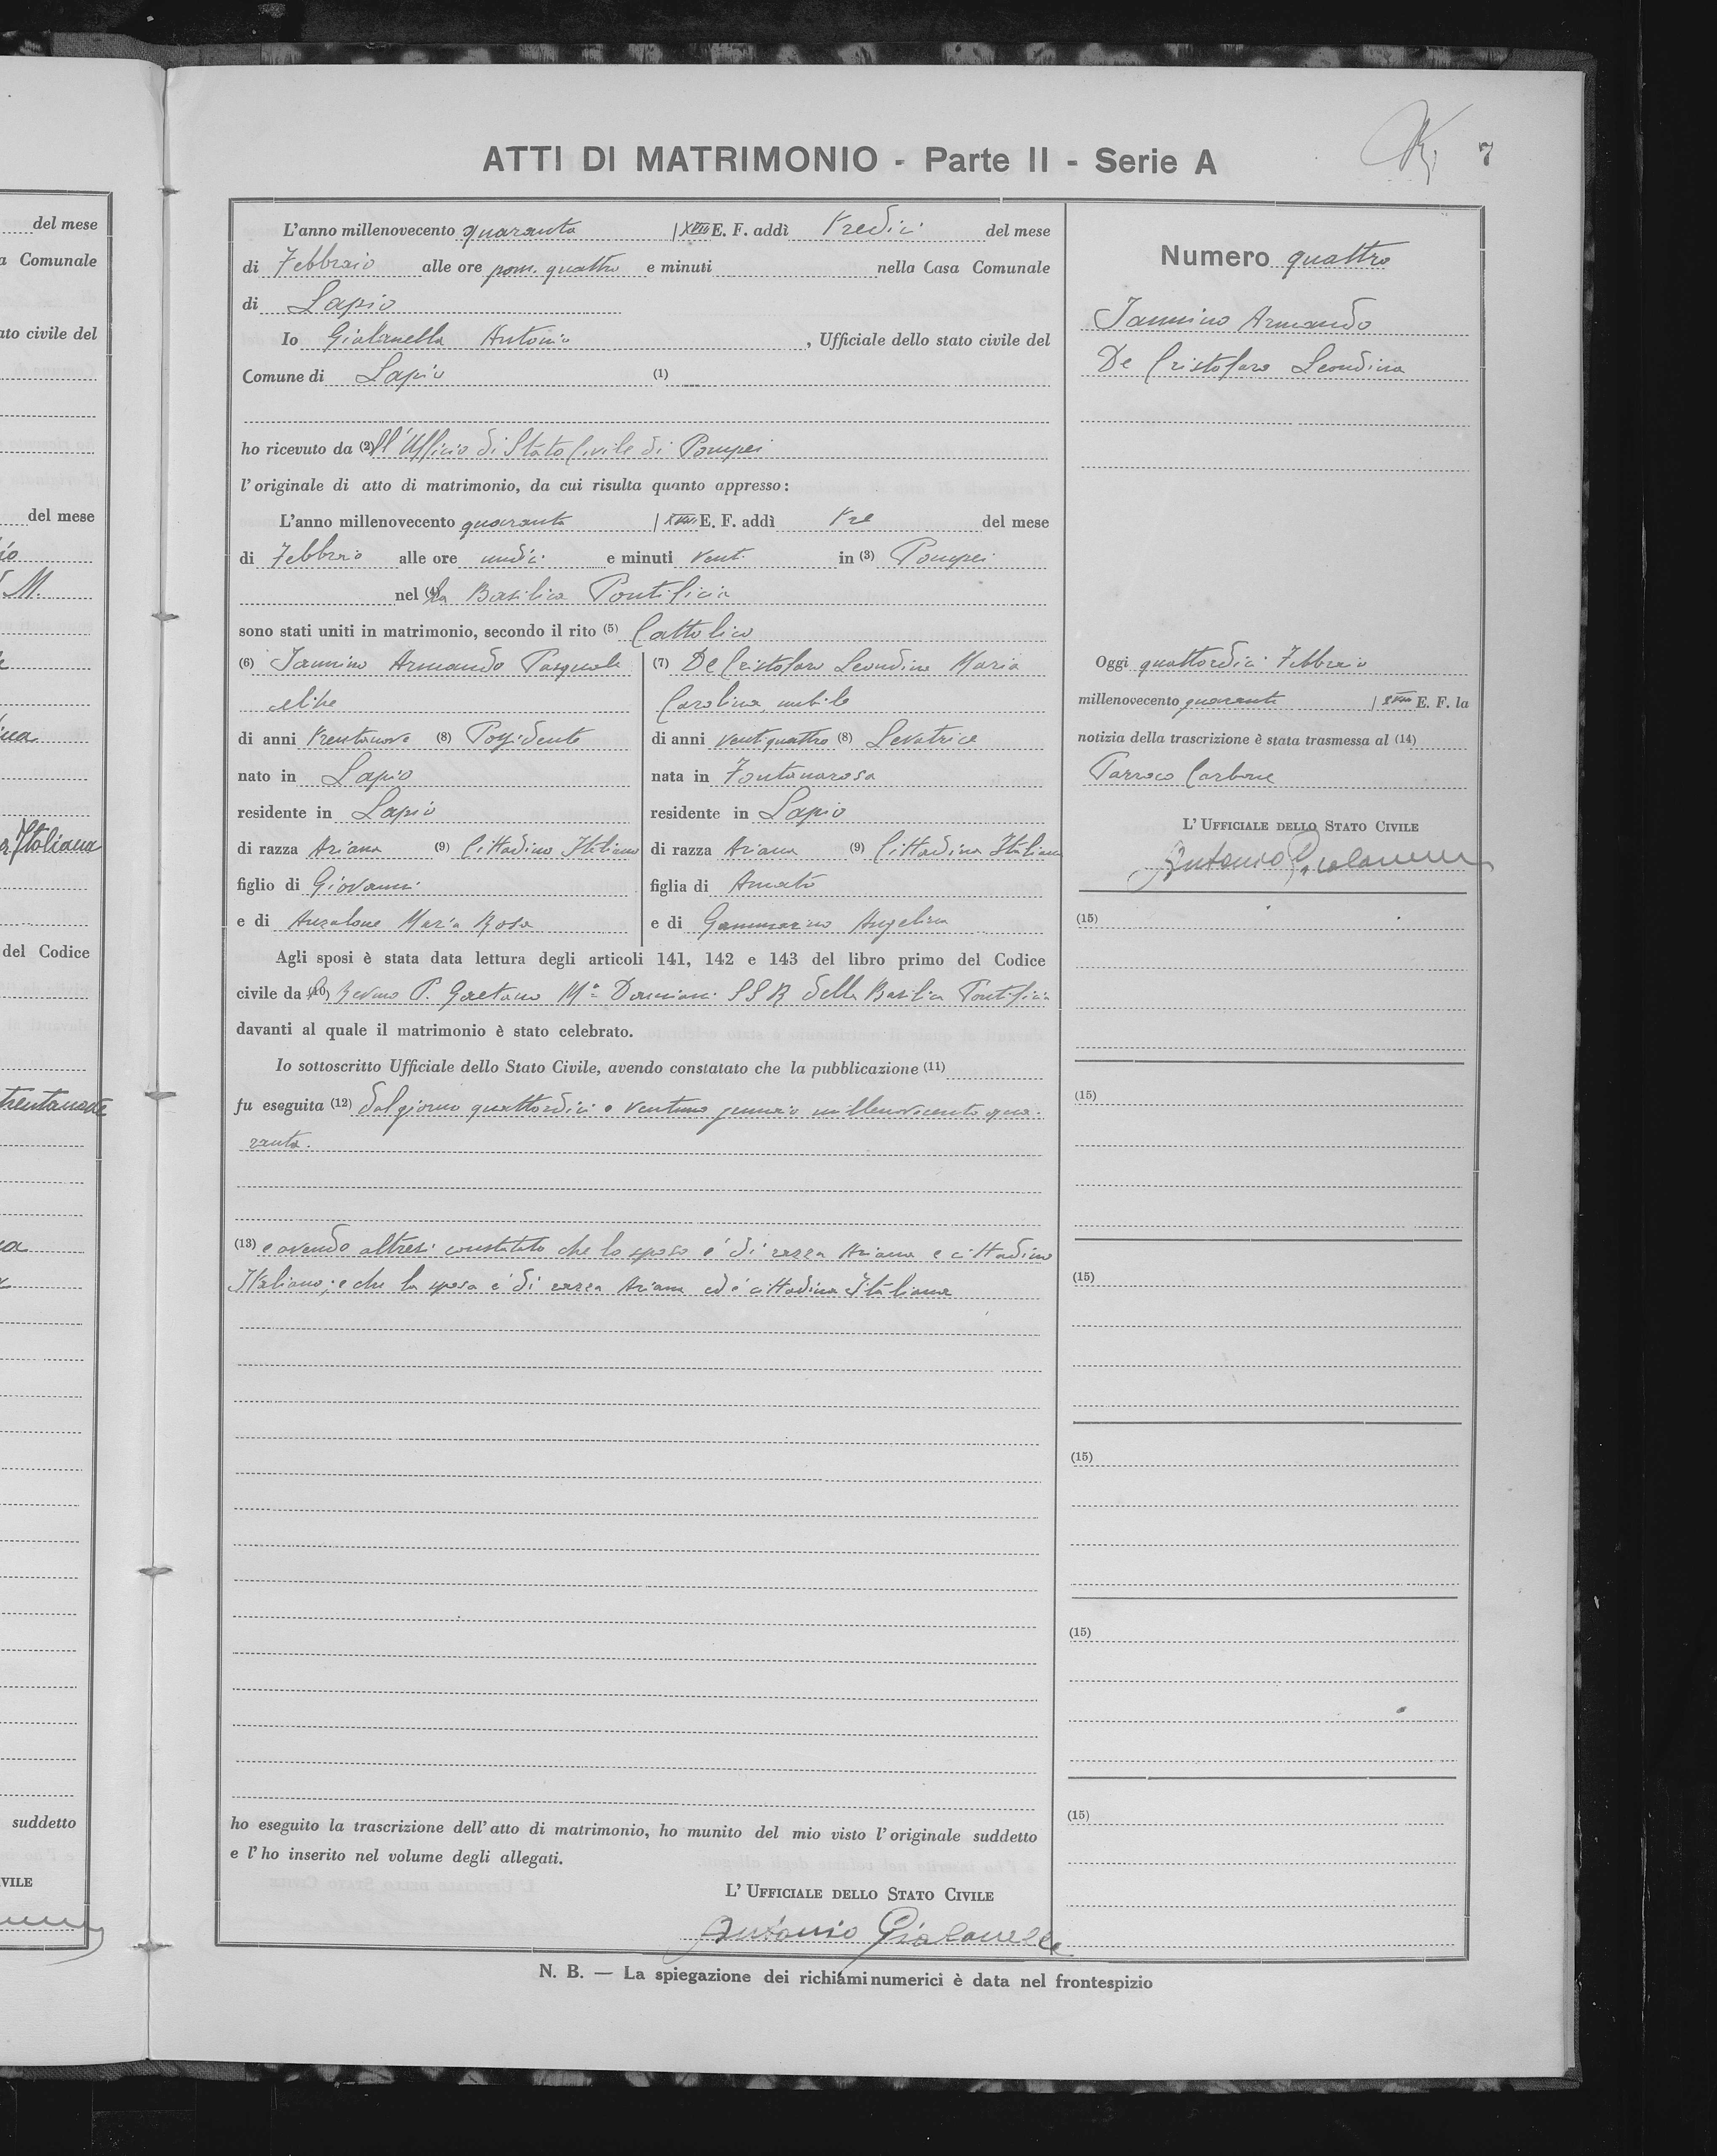 ATTI DI MATRIMONIO - Parte II - Serie A
7
L'anno millenovecento quaranta XVIII E. F. addì tredici del mese
di Febbraio alle ore pom. quattro e minuti nella Casa Comunale
di Lapio
Io Gialanella Antonio, Ufficiale dello stato civile del
Comune di Lapio (1)
ho ricevuto da (2) ll'Ufficio di Stato Civile di Pompei
l'originale di atto di matrimonio, da cui risulta quanto appresso:
L'anno millenovecento quaranta XVIII E. F. addì tre del mese
di Febbraio alle ore undici e minuti venti in (3) Pompei
nel (4) la Basilica Pontificia
sono stati uniti in matrimonio, secondo il rito (5) Cattolico
(6) Iannino Armando Pasquale
celibe
di anni trentanove (8) Possidente
nato in Lapio
residente in Lapio
di razza Ariana (9) Cittadino Italiano
figlio di Giovanni
e di Anzalone Maria Rosa
(7) De Cristofaro Leondina Maria
Carolina nubile
di anni ventiquattro (8) Levatrice
nata in Fontanarosa
residente in Lapio
di razza Ariana (9) Cittadina Italiana
figlia di Amato
e di Gammarino Angelina
Agli sposi è stata data lettura degli articoli 141, 142 e 143 del libro primo del Codice
civile da (10) Revmo P. Gaetano Mª Damiani SSR della Basilica Pontificia
davanti al quale il matrimonio è stato celebrato.
Io sottoscritto Ufficiale dello Stato Civile, avendo constatato che la pubblicazione (11)
fu eseguita (12) dal giorno quattordici e ventuno gennaio millenovecentoqua-
ranta.
(13) e avendo altresì constatato che lo sposo è di razza Ariana e cittadino
Italiano; e che la sposa è di razza Ariana ed è cittadina Italiana
ho eseguito la trascrizione dell'atto di matrimonio, ho munito del mio visto l'originale suddetto
e l'ho inserito nel volume degli allegati.
L'UFFICIALE DELLO STATO CIVILE
Antonio Gialanella
Numero quattro
Iannino Armando
De Cristofaro Leondina
Oggi quattordici Febbraio
millenovecento quaranta XVIII E. F. la
notizia della trascrizione è stata trasmessa al (14)
Parroco Carbone
L'UFFICIALE DELLO STATO CIVILE
Antonio Gialanella
(15)
(15)
(15)
(15)
(15)
(15)
N. B. — La spiegazione dei richiami numerici è data nel frontespizio
del mese
Comunale
ato civile del
del mese
M.
Italiana
del Codice
trentanove
suddetto
VILE